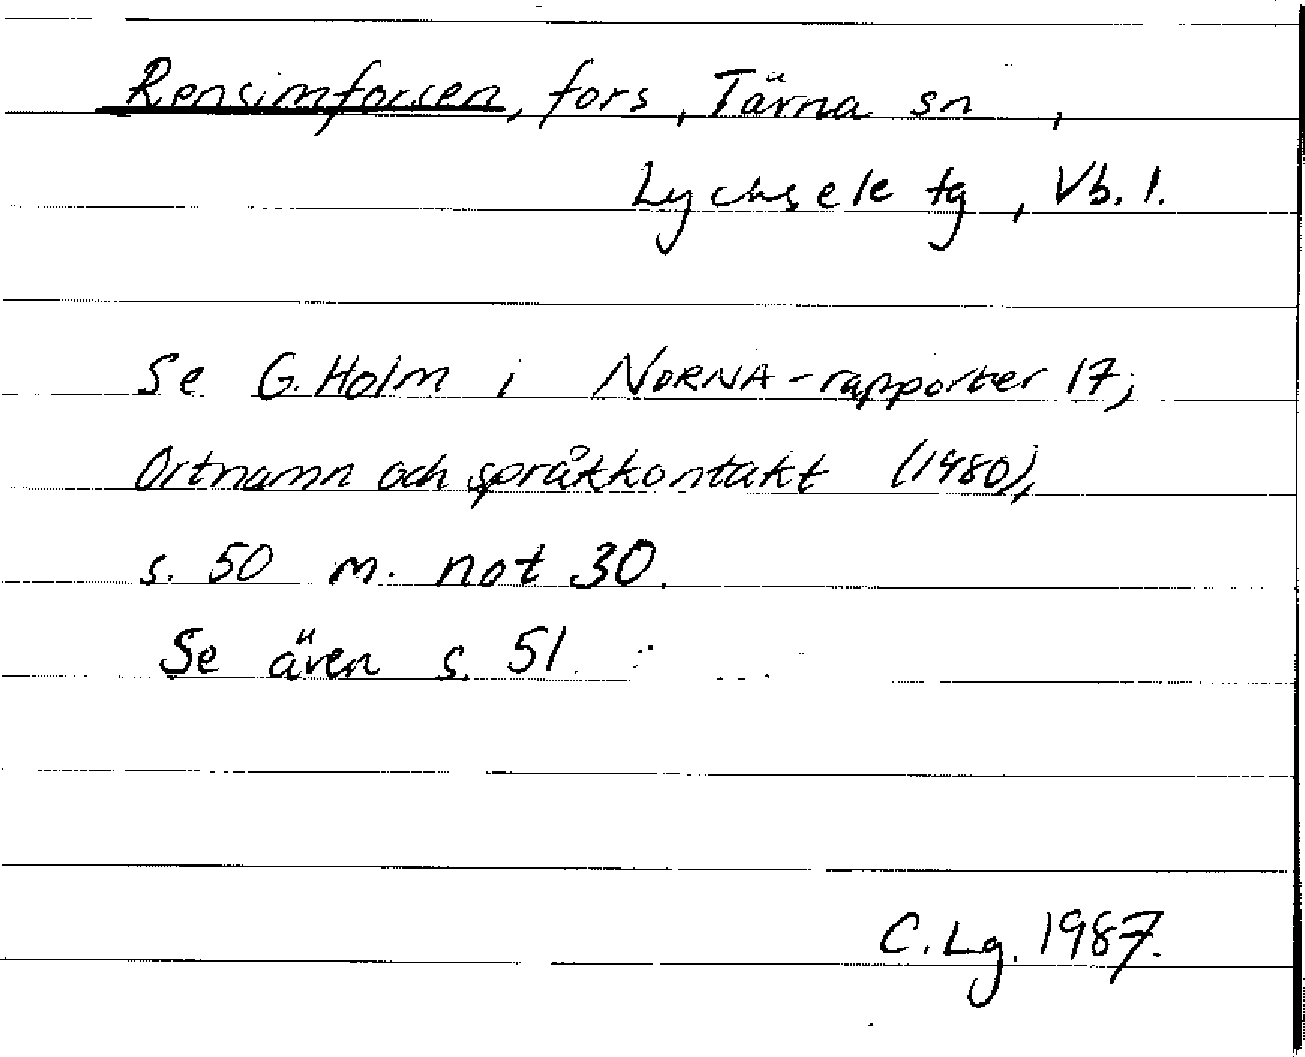 Rensimforsen, fors, Tärna sn,
Lycksele tg, Vb. l.
Se G. Holm i NORNA-rapporter 17;
Ortnamn och språkkontakt (1980),
s. 50 m. not 30.
Se även s. 51.
C. Lg. 1987.